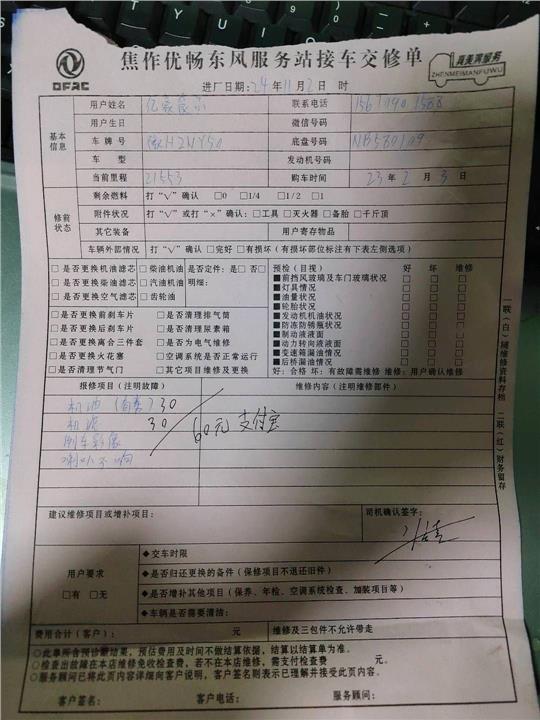 DFAC
焦作优畅东风服务站接车交修单
真美满服务
ZHENMEIMANFUWU
进厂日期:24年11月2日 时
基本信息
用户姓名
联系电话
用户生日
微信号码
车牌号 豫H2NY50
底盘号码 NB580109
车型
发动机号码
当前里程 21553
购车时间 23年2月3日
修前状态
剩余燃料 打“√”确认 □0 □1/4 □1/2 □1
附件状况 打“√”或打“×”确认:□工具 □灭火器 □备胎 □千斤顶
其它装备
用户寄存物品
车辆外部情况 打“√”确认 □完好 □有损坏(有损坏部位标注有下表左侧选项)
□是否更换机油滤芯 □柴油机油 是否定件:是□否□
□是否更换柴油滤芯 □汽油机油 明细:
□是否更换空气滤芯 □齿轮油
□是否更换前刹车片 □是否清理排气筒
□是否更换后刹车片 □是否清理尿素箱
□是否更换离合三件套 □是否为电气维修
□是否更换火花塞 □空调系统是否正常运行
□是否清理节气门 □其它项目维修及更换
预检(目视) 好 坏 维修
■前挡风玻璃及车门玻璃状况
■灯具情况
■油量状况
■轮胎状况
■发动机机油状况
■防冻防锈瓶状况
■制动液液面
■动力转向液液面
■变速箱漏油情况
■后桥漏油情况
好:合格 坏:有故障需维修 维修:用户确认维修
报修项目(注明故障)
维修内容(注明维修部件)
机油(自带)30
机滤 30
60元 支付宝
倒车影像
喇叭不响
建议维修项目或增补项目:
司机确认签字:
用户要求
□有 □无
◆交车时限
◆是否归还更换的备件(保修项目不退还旧件)
◆是否增补其他项目(保养、年检、空调系统检查、加装项目等)
◆车辆是否需要清洁:
费用合计(客户): 元
维修及三包件不允许带走
○此单所含预诊断结果,预估费用及时间不做结算依据,结算以结算单为准。
○检查出故障在本店维修免收检查费,若不在本店维修,需支付检查费 元。
○服务顾问已将此页内容详细向客户说明,客户签名则表示已理解并接受此页内容。
客户签名: 客户电话: 服务顾问:
一联(白)随维修资料存档 二联(红)财务留存